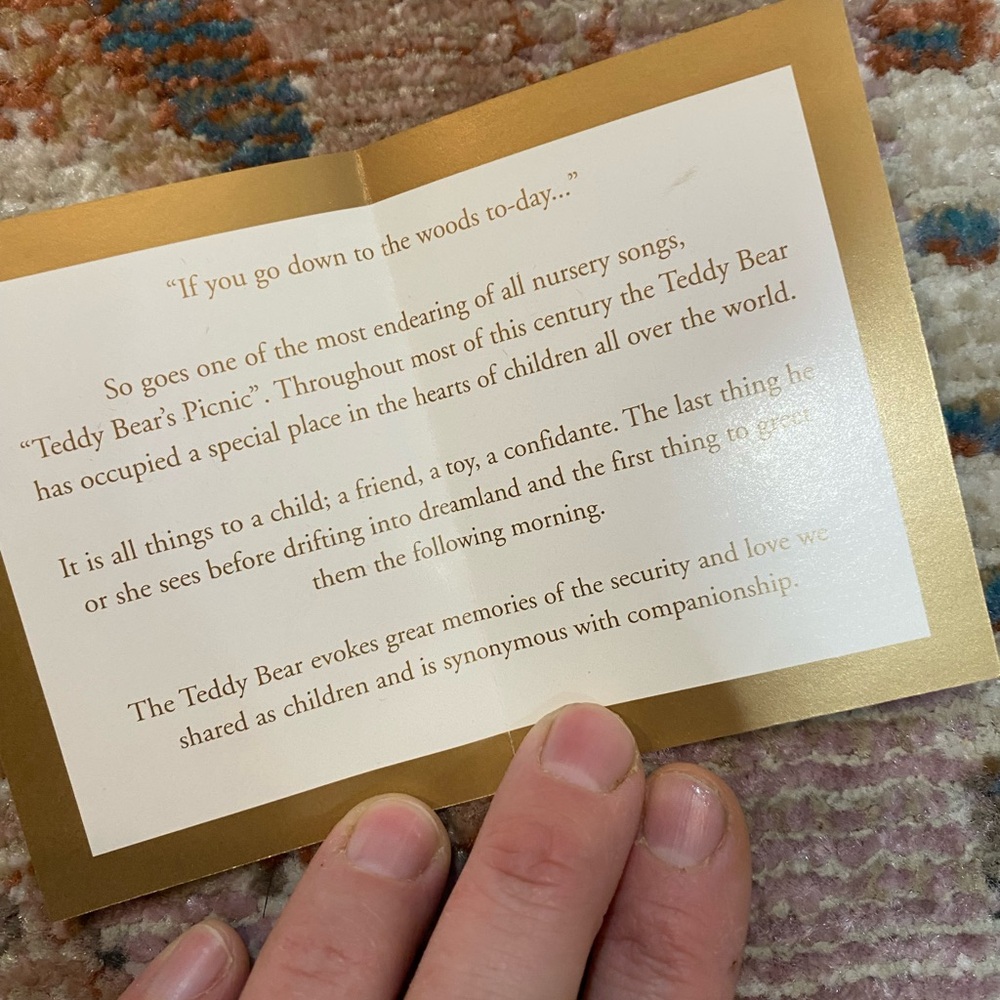 “If you go down to the woods to-day...”
So goes one of the most endearing of all nursery songs,
“Teddy Bear’s Picnic”. Throughout most of this century the Teddy Bear
has occupied a special place in the hearts of children all over the world.
It is all things to a child; a friend, a toy, a confidante. The last thing he
or she sees before drifting into dreamland and the first thing to greet
them the following morning.
The Teddy Bear evokes great memories of the security and love we
shared as children and is synonymous with companionship.